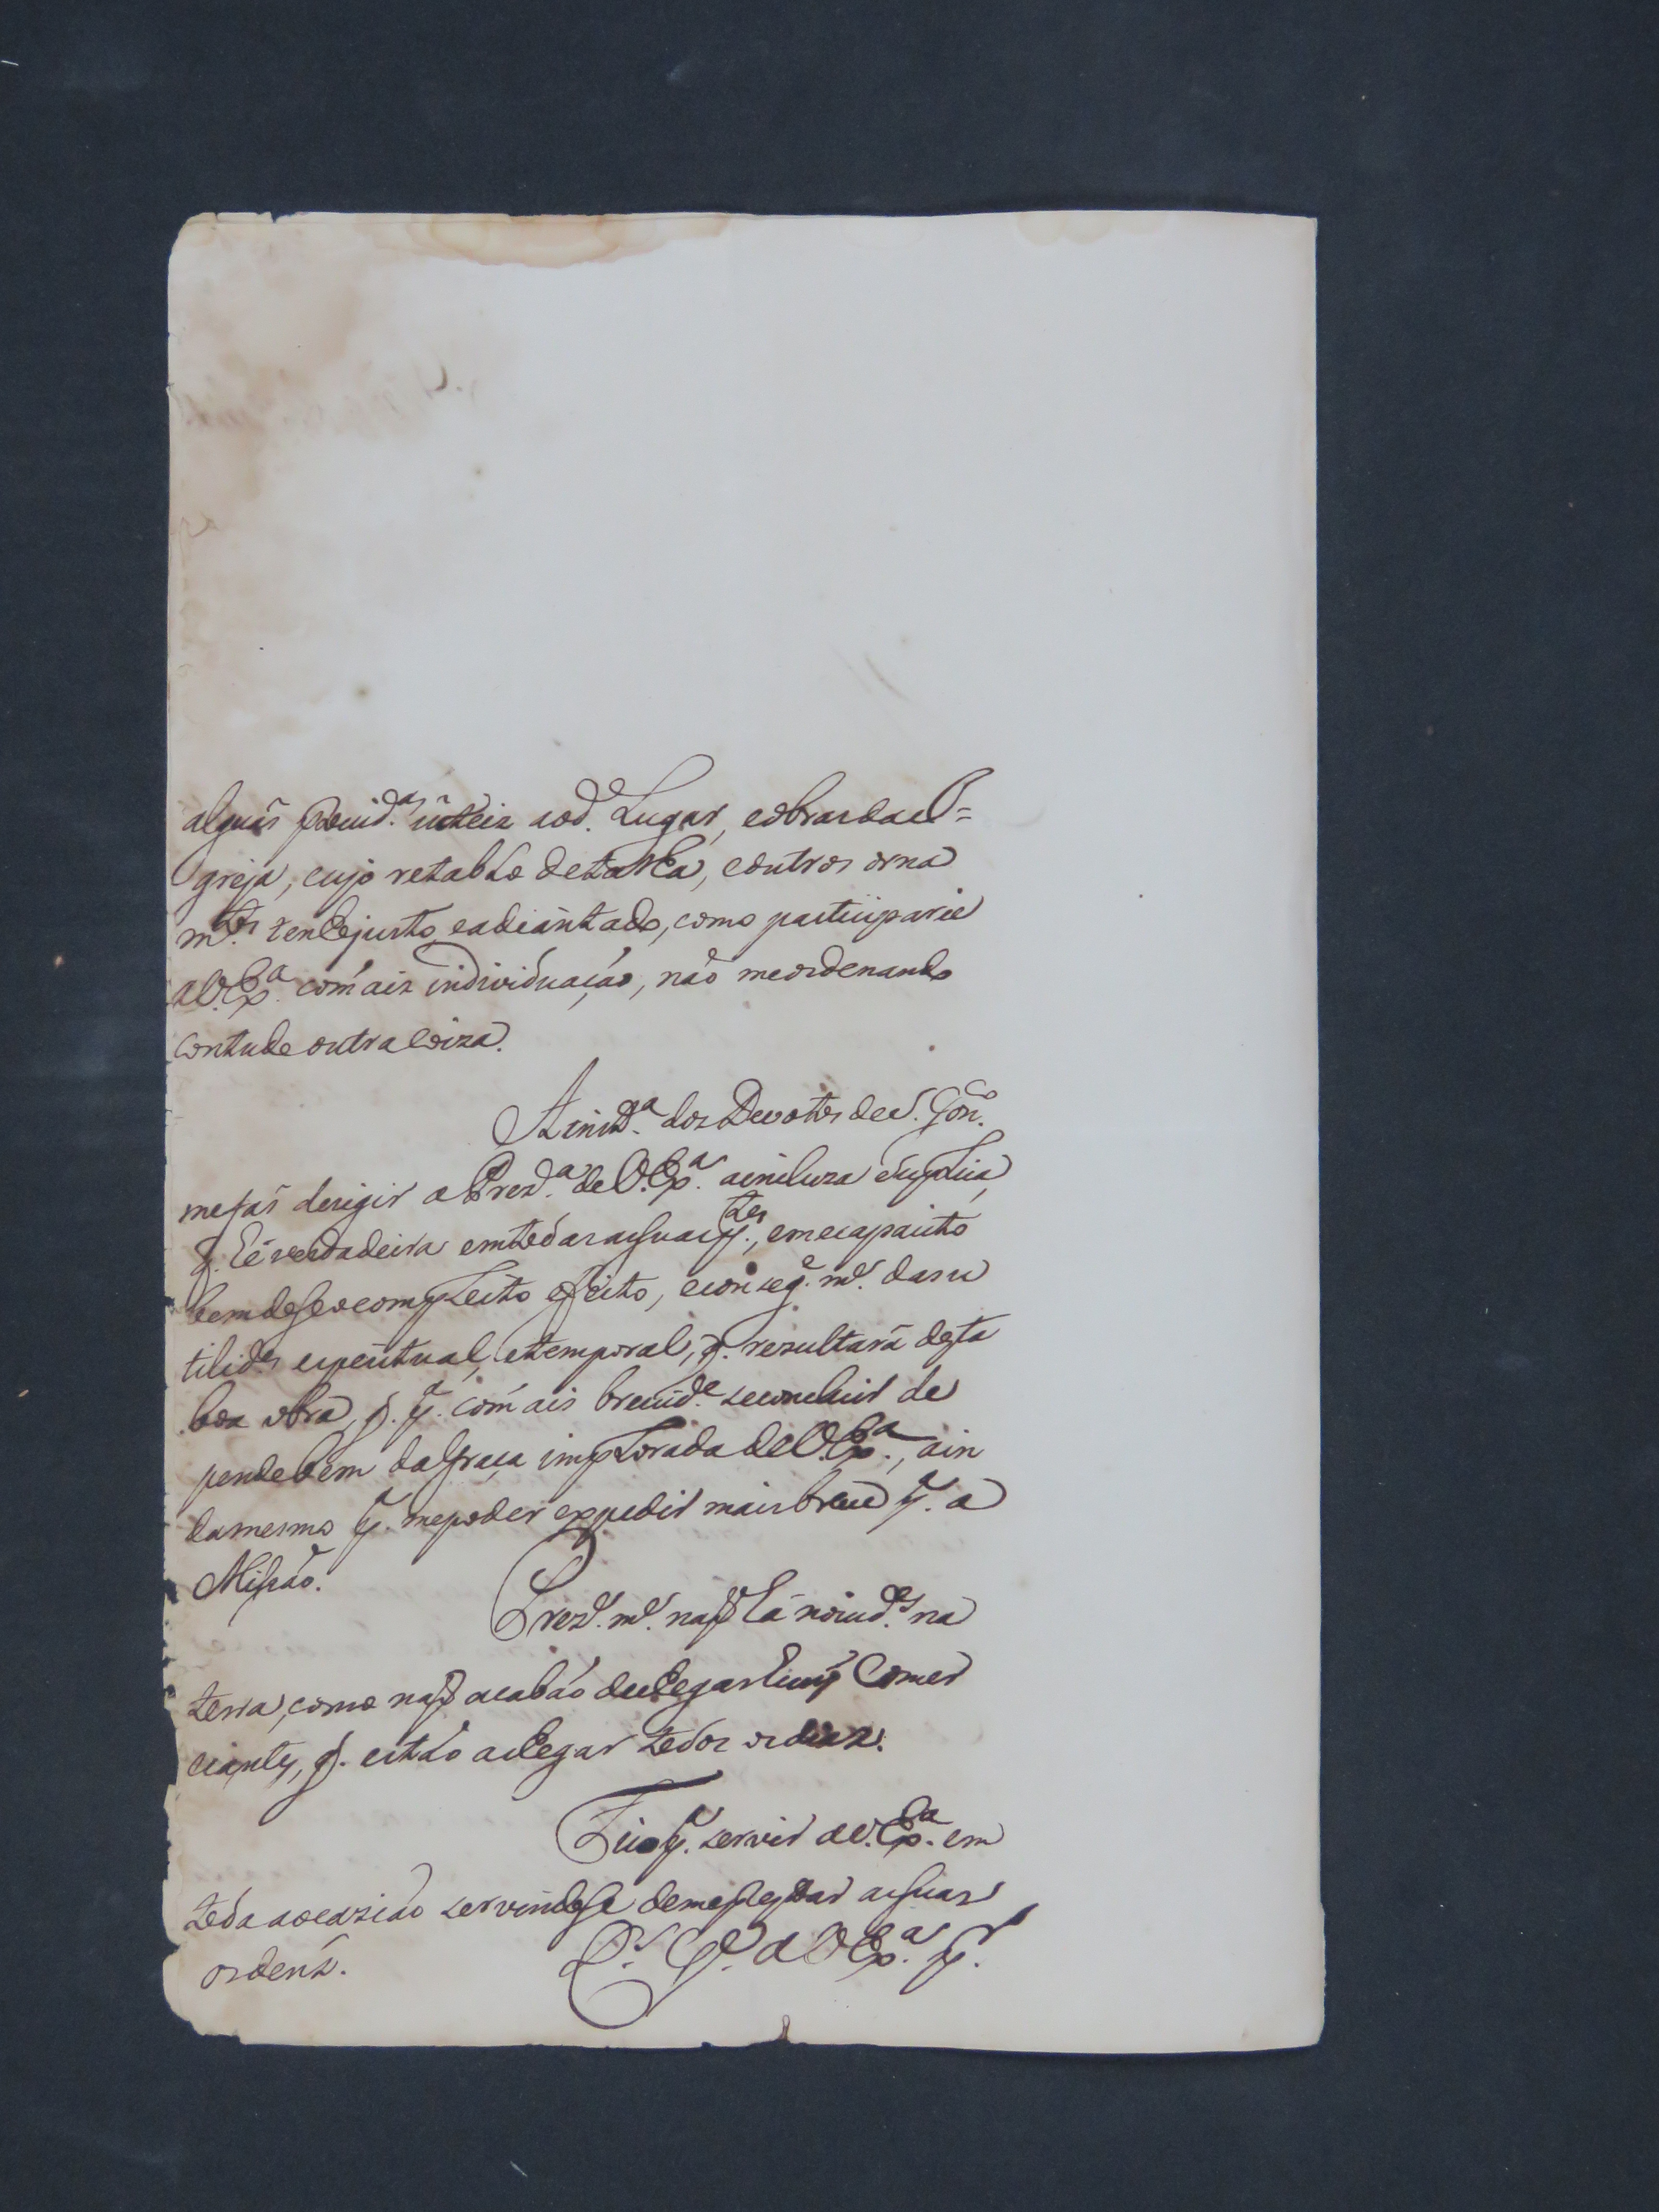 alguãs provid.ᵃˢ uteiz aod.º Lugar, eobrardaeI=
greja, cujo retablo detalha, eoutros orna
m.ᵗᵒˢ tenhojusto, eadiantado, como participarei
aV.Exª. comaiz individuação, não meordenando
contudo outra coiza.
A inst.ª dos Devotos de S. Gon.ᶜᵒ
mefas derigir a Prez.ª de V.Exª. ainclusa suplica,
q̃. hé verdadeira emtodas assuas p.ᵗᵉˢ,
bemdeseocompleito efeito, econseg.ᵉ m.ᵉ dasu
tilid.ᵉˢ espiritual, etemporal, q̃. resultará desta
boa obra, comais brevid.ᵉ seconcluir de
pendebem dagraça implorada de V.Exª., ain
damesmo p.ª mepoder expedir mais breve p.ª a
Missão.
Prez.ᵉ m.ᵉ naõ há novid.ᵉˢ na
terra, como naõ acabáo dechegar huns Comer
ciantes, q̃. estáo achegar todos osdiaz.
Fico p.ª servir aV.Exª. em
toda aocaziáo servindose demefestar assuas
ordens. D.ˢ G.ᵉ a V.Exª. p.ʳ